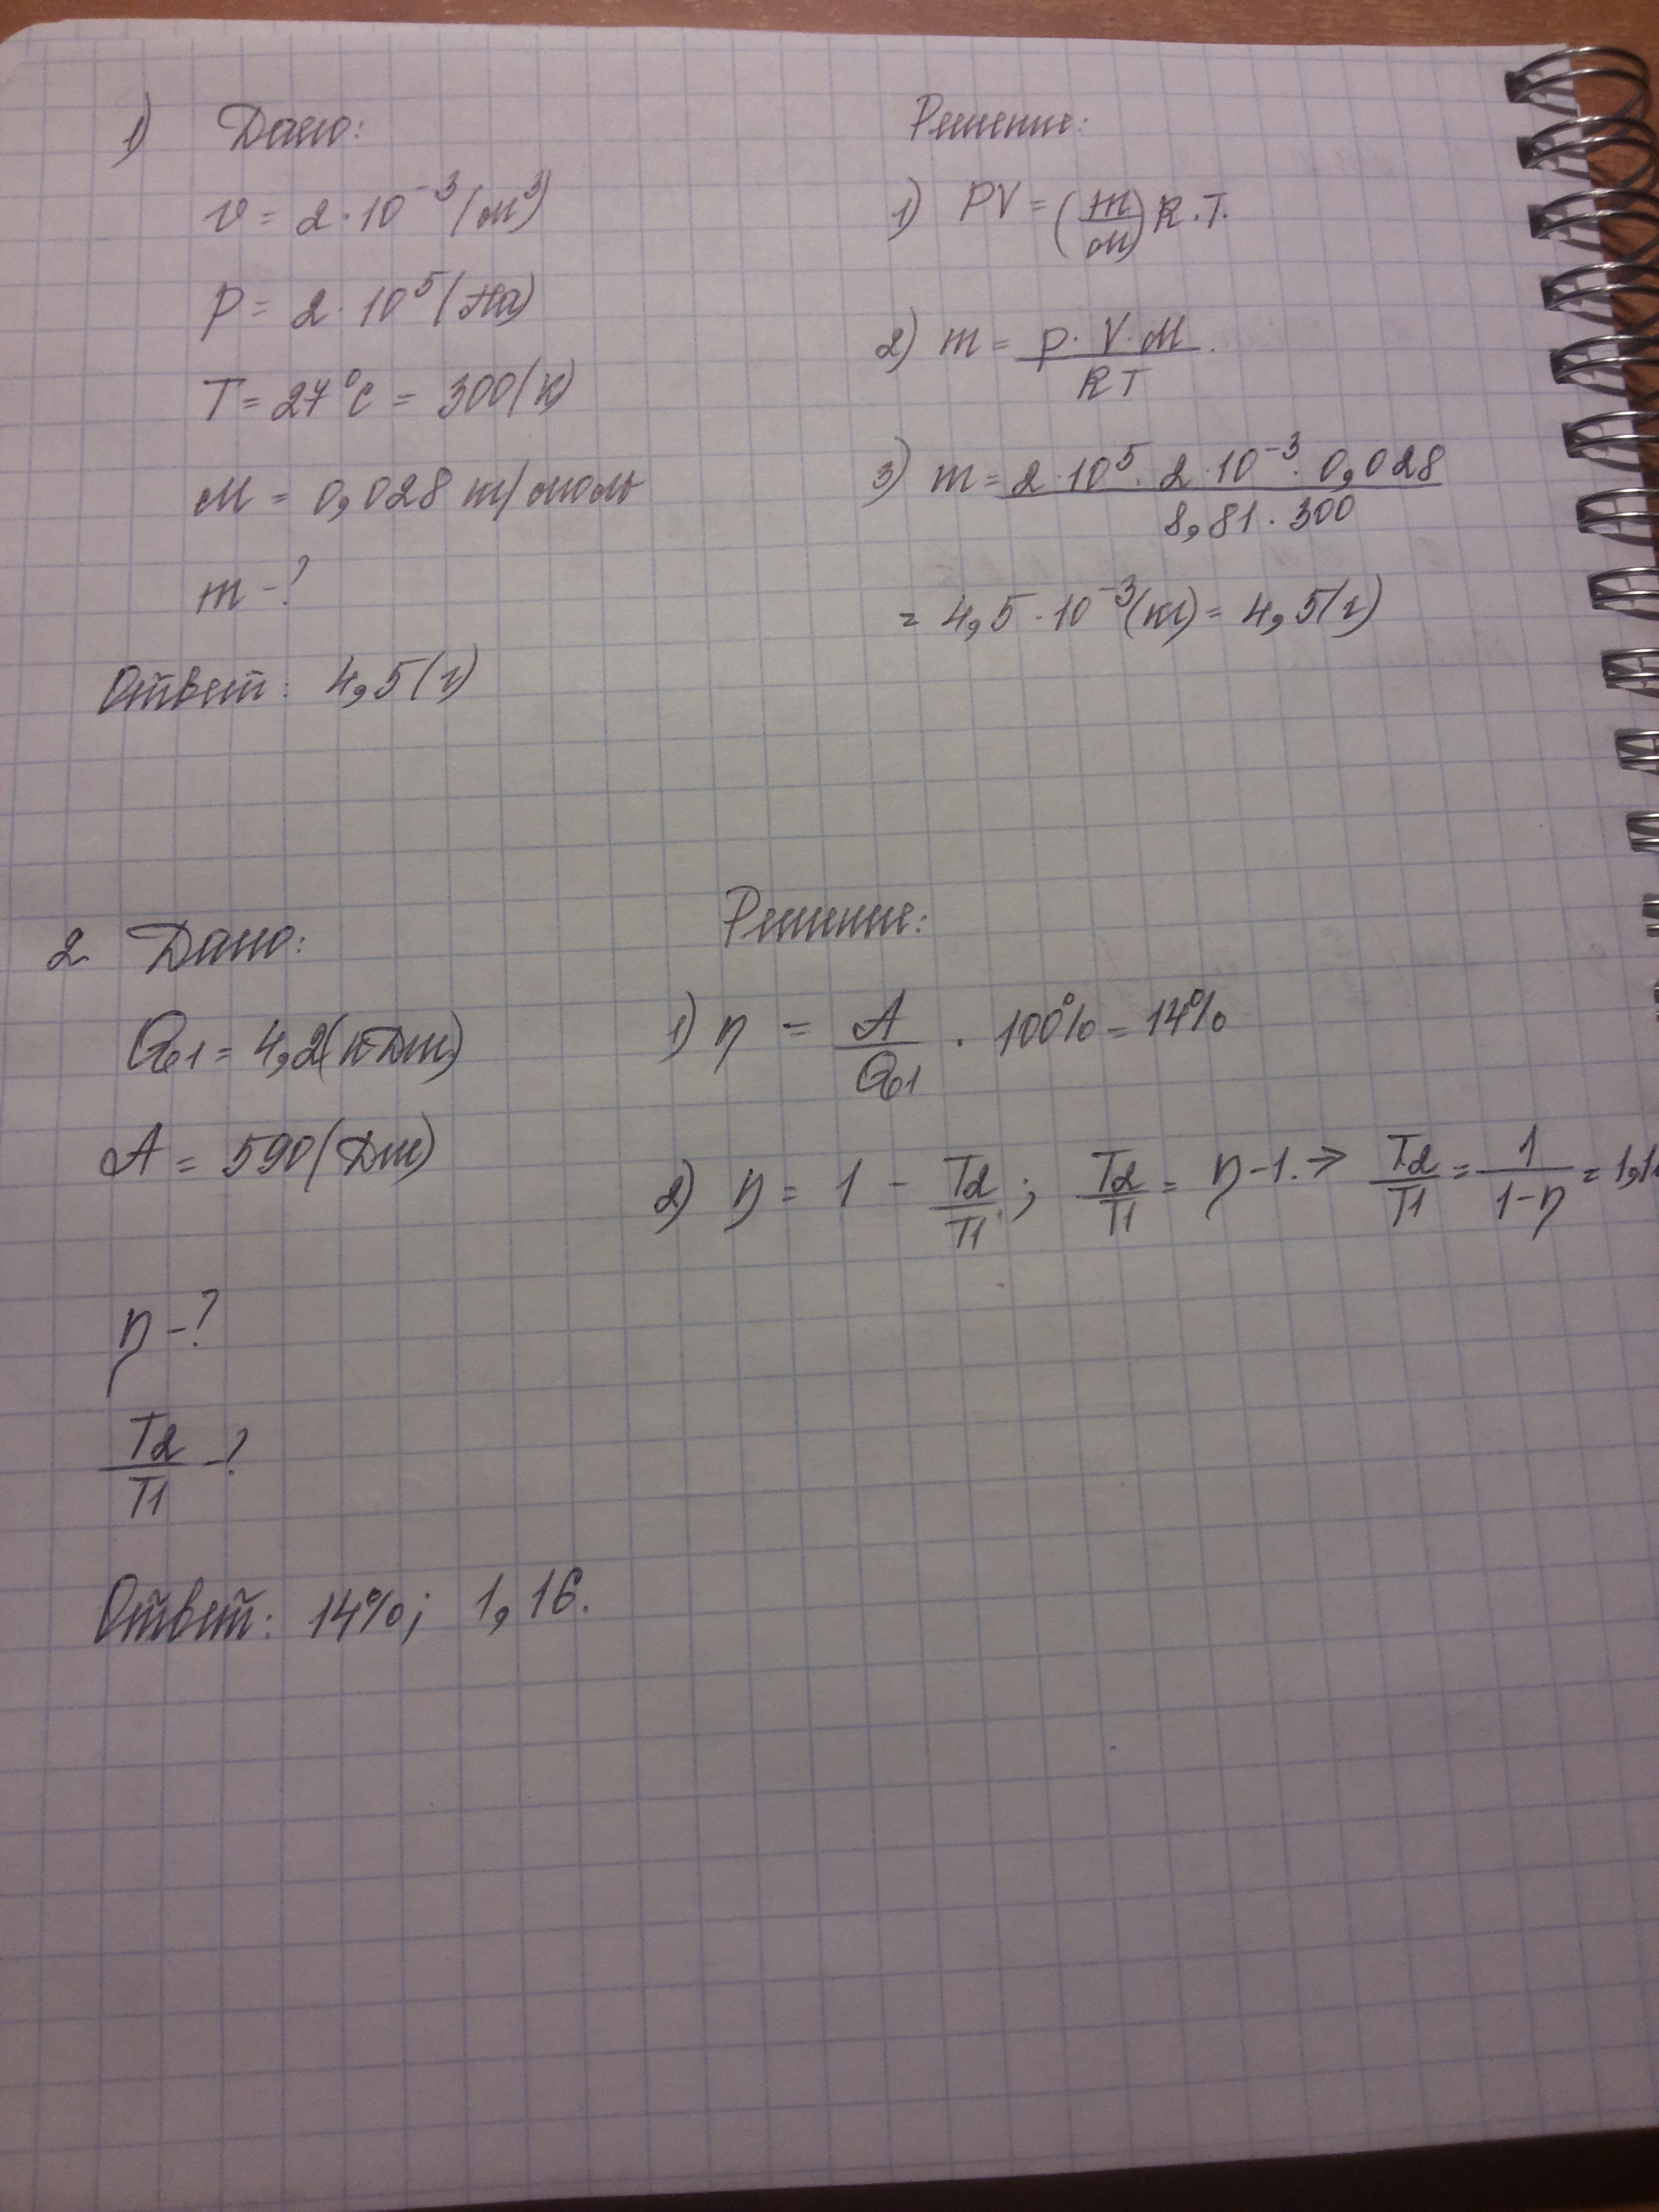 1) Дано:
v = 2 · 10⁻³ (м³)
p = 2 · 10⁵ (Па)
T = 27°C = 300 (К)
M = 0,028 кг/моль
m - ?
Ответ: 4,5 (г)
Решение:
1) PV = (m/M) R · T.
2) m = p · V · M / RT.
3) m = 2 · 10⁵ · 2 · 10⁻³ · 0,028 / 8,81 · 300
= 4,5 · 10⁻³ (кг) = 4,5 (г)
2. Дано:
Q1 = 4,2 (кДж)
A = 590 (Дж)
η - ?
T2/T1 - ?
Ответ: 14%; 1,16.
Решение:
1) η = A/Q1 · 100% = 14%
2) η = 1 - T2/T1; T2/T1 = η - 1. → T2/T1 = 1/(1-η) = 1,1